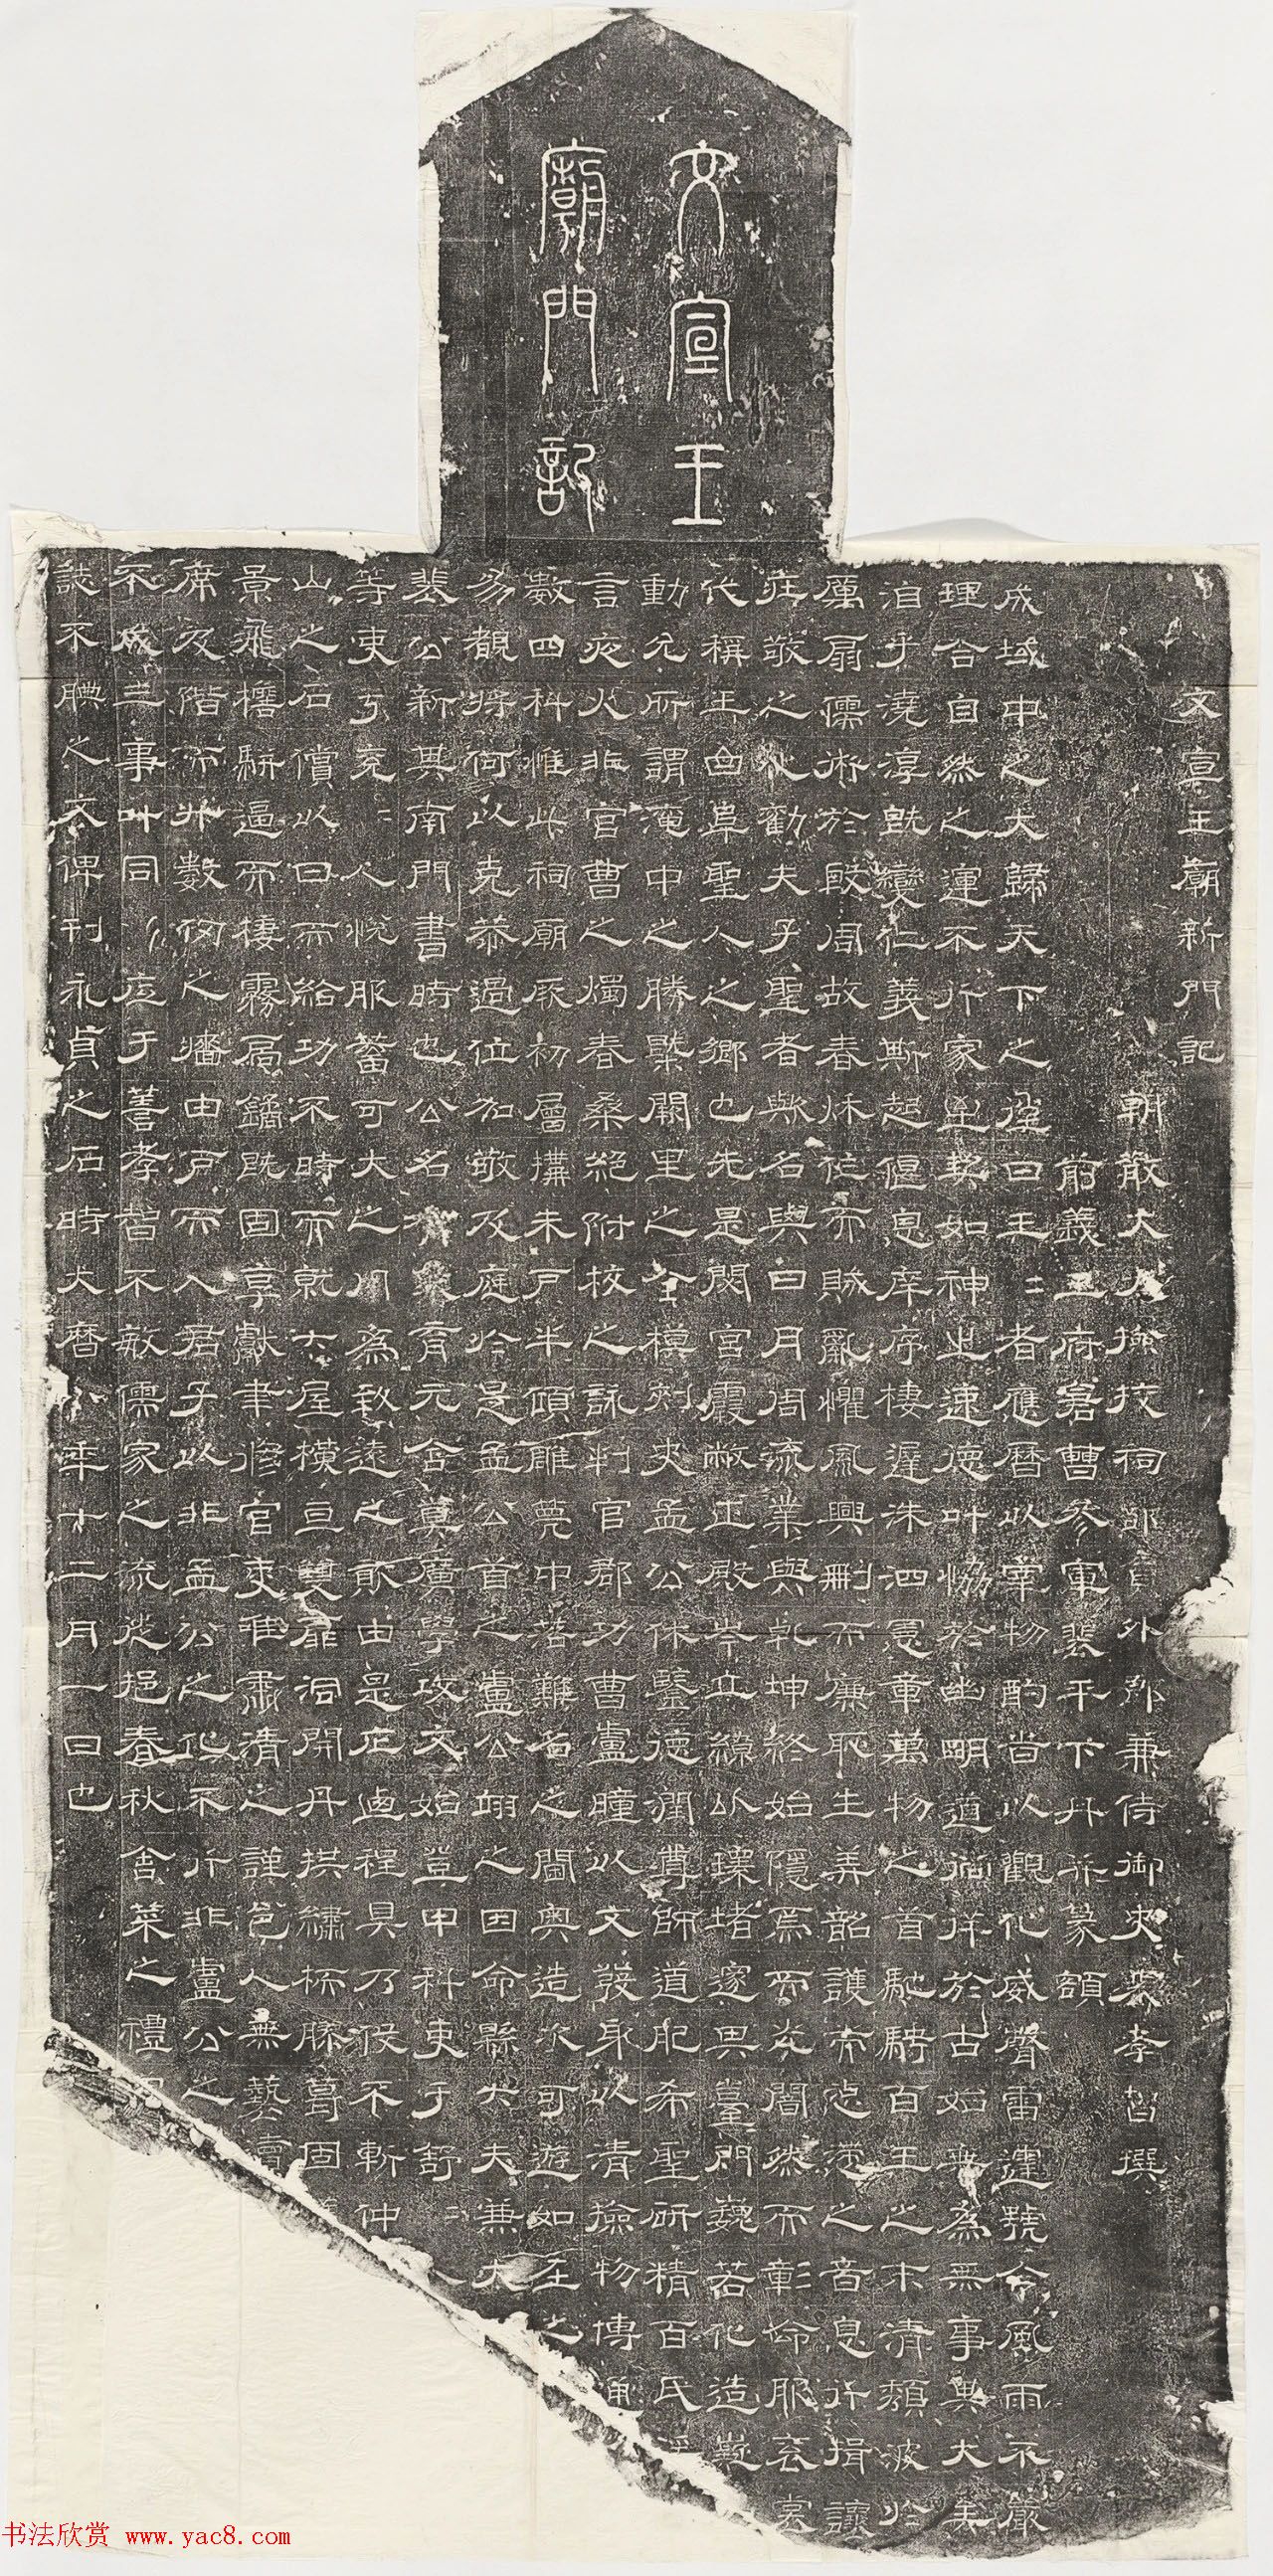 文宣王
廟門記
文宣王廟新門記
朝散大夫檢挍祠部員外郎兼侍御史裴孝智撰
前義王府倉曹參軍裴平下丹并篆額
成域中之大歸天下之往曰王=者應曆以宰物酌時以觀化威聲雷運號令風雨不嚴
理合自然之運不行家至契如神之速德叶恊於幽明道徜徉於古始無為無事與大
洎乎澆淳旣變仁義斯起偃息庠序棲遲洙泗憲章萬物之首馳騁百王之末清頹波於
厲扇儒術於戰周故春秋作而賊亂懼風興刪而廉恥生弄韶護而忘濮之音息行揖讓
莊敬之化勸夫子聖者歟名與日月周流業與乾坤終始隱焉而光闇然而彰命服衮
代稱王曲阜聖人之鄉也先是閟宮霞敞正殿岑立繚以環堵邃其臺門巍若化造嶷
動允所謂淹中之勝槩闕里之全模刺史孟公休鑒德潤尊師道肥希聖研精百氏
言夜火非官曹之燭春桑絕附校之詠判官郡功曹盧瞳以文發身以清撿物博涌
數四科惟此祠廟厥初層搆未戶半傾雕甍中落難名之閫奥造次可遊如在之
易覩將何以克恭過位加敬及庭於是孟公首之盧公翊之因命縣大夫兼大
裴公新其南門書時也公名有象育元含真廣學攻文始登甲科吏于舒=人
等吏于兗=人悅服蓄可大之用為致遠之資由是庀徒程具乃役不斬仲
山之石償以日而給功不時而就大屋橫亘雙扉洞開丹拱繡栭滕葛固
景飛檐駢逼而棲霧扃鐍既固享獻聿修官吏惟肅清之謹邑人無藝賣
席及階而升數仞之墻由戶而入君子以非孟公之化不行非盧公之
不成三事叶同以底于善孝智不敏儒家之流從挹春秋舍菜之禮
誌不腆之文俾刊永貞之石時大曆八年十二月一日也
书法欣赏 www.yac8.com